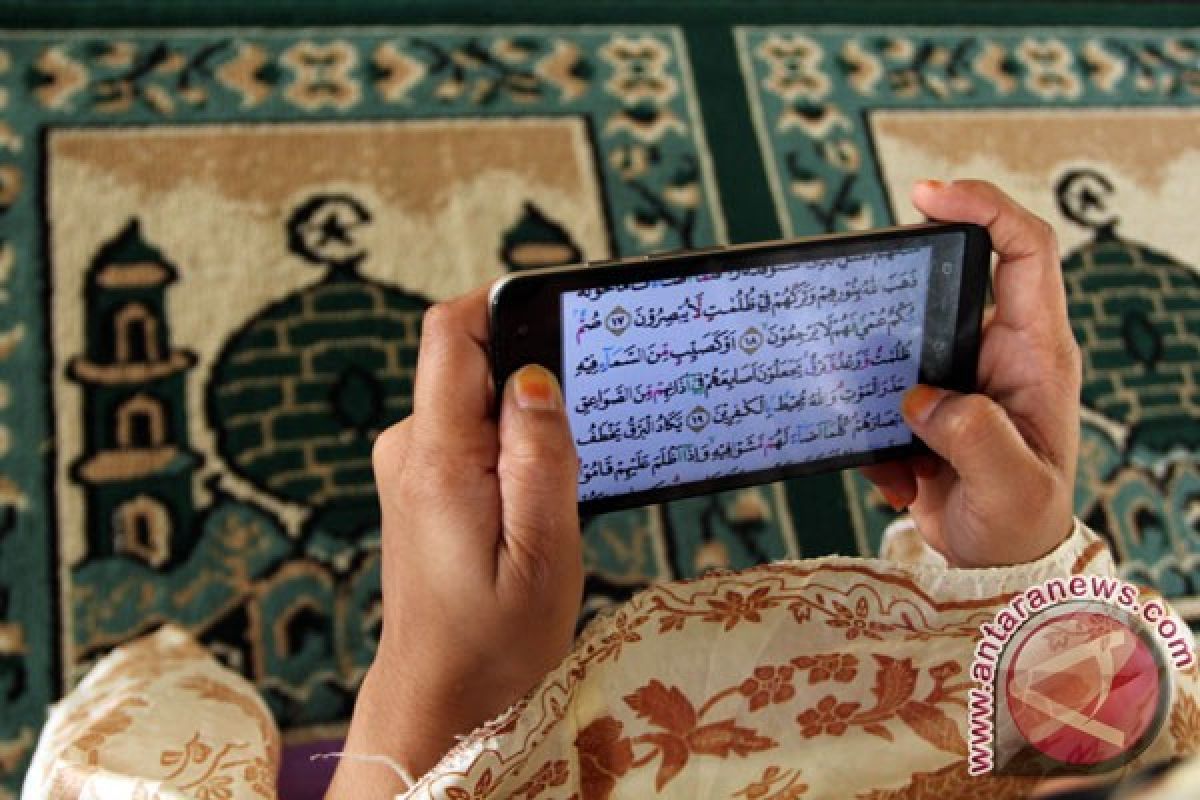 حَوْلَهُ
ذَهَبَ اللّٰهُ بِنُوْرِهِمْ وَتَرَكَهُمْ فِيْ ظُلُمٰتٍ لَّا يُبْصِرُوْنَ ١٧ صُمٌّۢ
بُكْمٌ عُمْيٌ فَهُمْ لَا يَرْجِعُوْنَ ١٨ اَوْ كَصَيِّبٍ مِّنَ السَّمَاۤءِ فِيْهِ
ظُلُمٰتٌ وَّرَعْدٌ وَّبَرْقٌ يَجْعَلُوْنَ اَصَابِعَهُمْ فِيْٓ اٰذَانِهِمْ مِّنَ الصَّوَاعِقِ
حَذَرَ الْمَوْتِ وَاللّٰهُ مُحِيْطٌۢ بِالْكٰفِرِيْنَ ١٩ يَكَادُ الْبَرْقُ يَخْطَفُ
اَبْصَارَهُمْ كُلَّمَآ اَضَاۤءَ لَهُمْ مَّشَوْا فِيْهِ وَاِذَآ اَظْلَمَ عَلَيْهِمْ قَامُوْا
www.antaranews.com